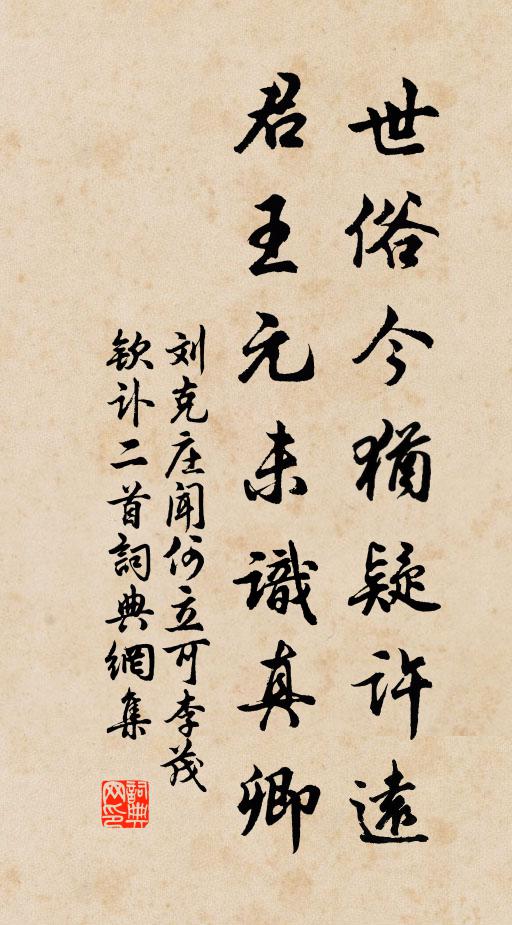 世俗今猶疑許遠
君王元未識真卿
刘克庄闻何立可李茂
钦讣二首詞典網集
詞典网印